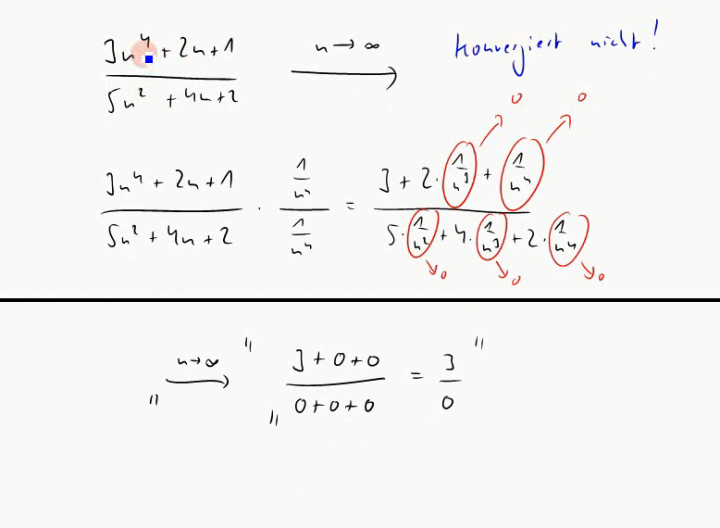 (3n⁴ + 2n + 1)/(5n² + 4n + 2) n → ∞ konvergiert nicht!
(3n⁴ + 2n + 1)/(5n² + 4n + 2) · (1/n⁴)/(1/n⁴) = (3 + 2·1/n³ + 1/n⁴)/(5·1/n² + 4·1/n³ + 2·1/n⁴)
0 0
0 0 0
" n → ∞ " " (3 + 0 + 0)/(0 + 0 + 0) = 3/0 "